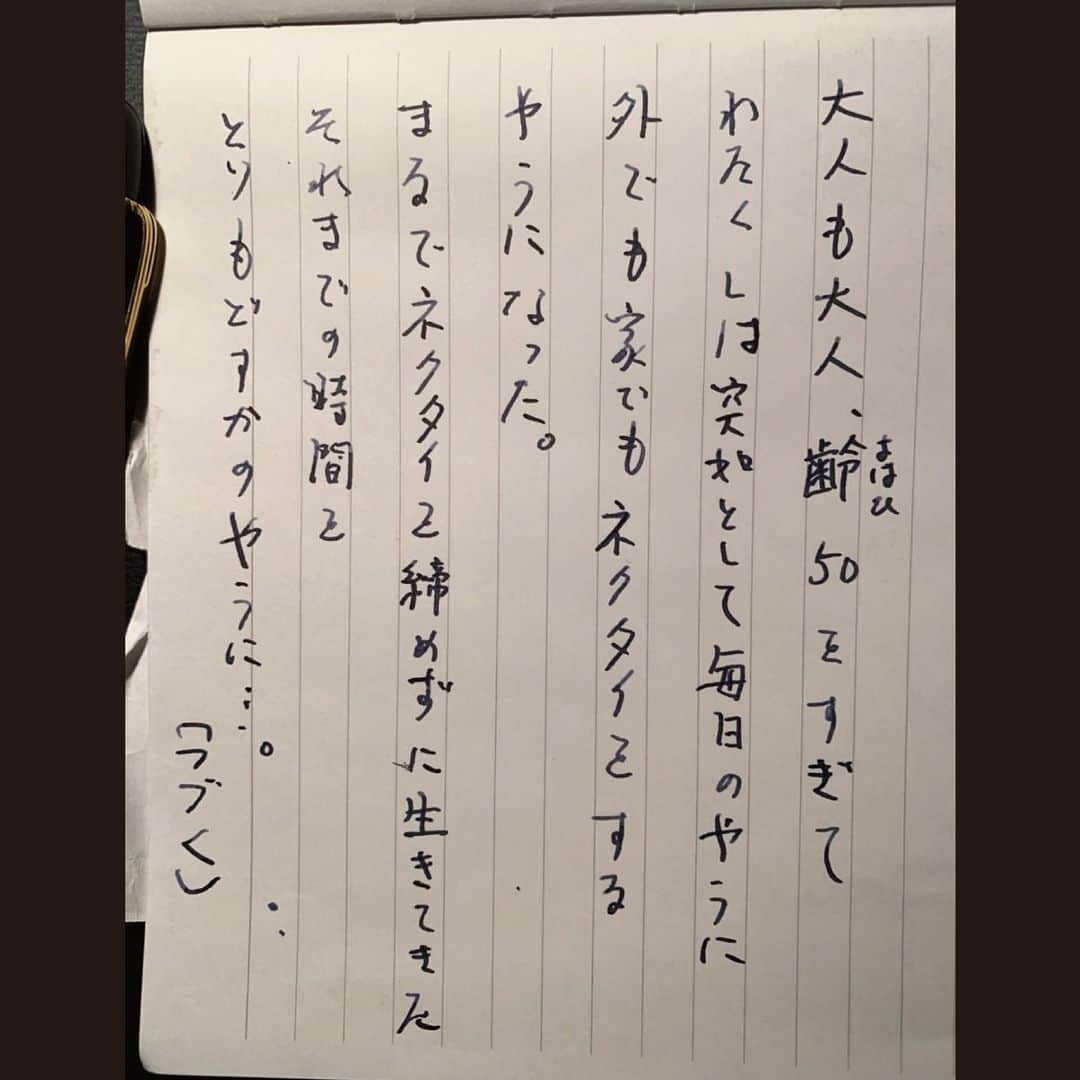 大人も大人、齢50をすぎて
よはひ
わたくしは突如として毎日のやうに
外でも家でもネクタイをする
やうになった。
まるでネクタイを締めずに生きてきた
それまでの時間を
とりもどすかのやうに…。
(つづく)